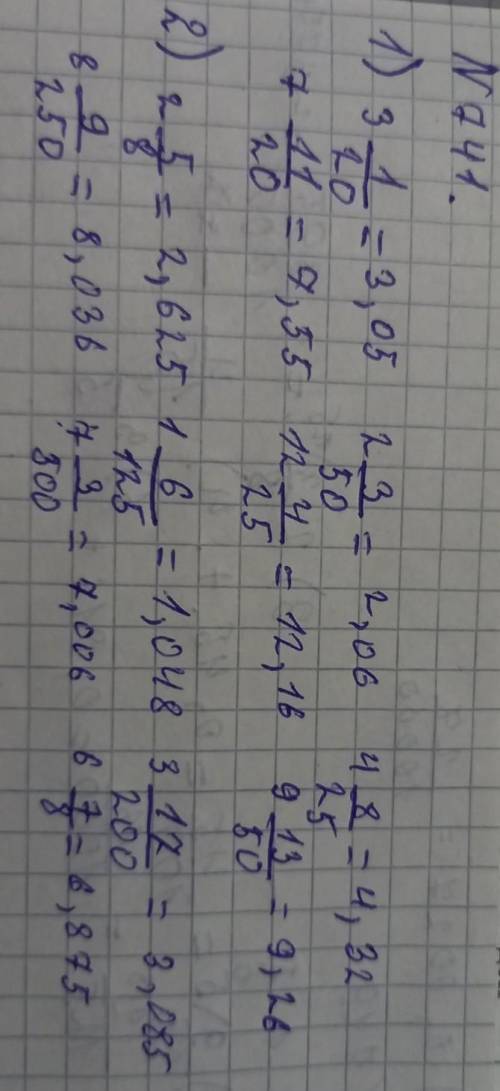 N 741.
1) 3 1/20 = 3,05 2 3/50 = 2,06 4 8/25 = 4,32
7 11/20 = 7,55 12 4/25 = 12,16 9 13/50 = 9,26
2) 2 5/8 = 2,625 1 6/125 = 1,048 3 17/200 = 3,085
8 9/250 = 8,036 7 3/500 = 7,006 6 7/8 = 6,875